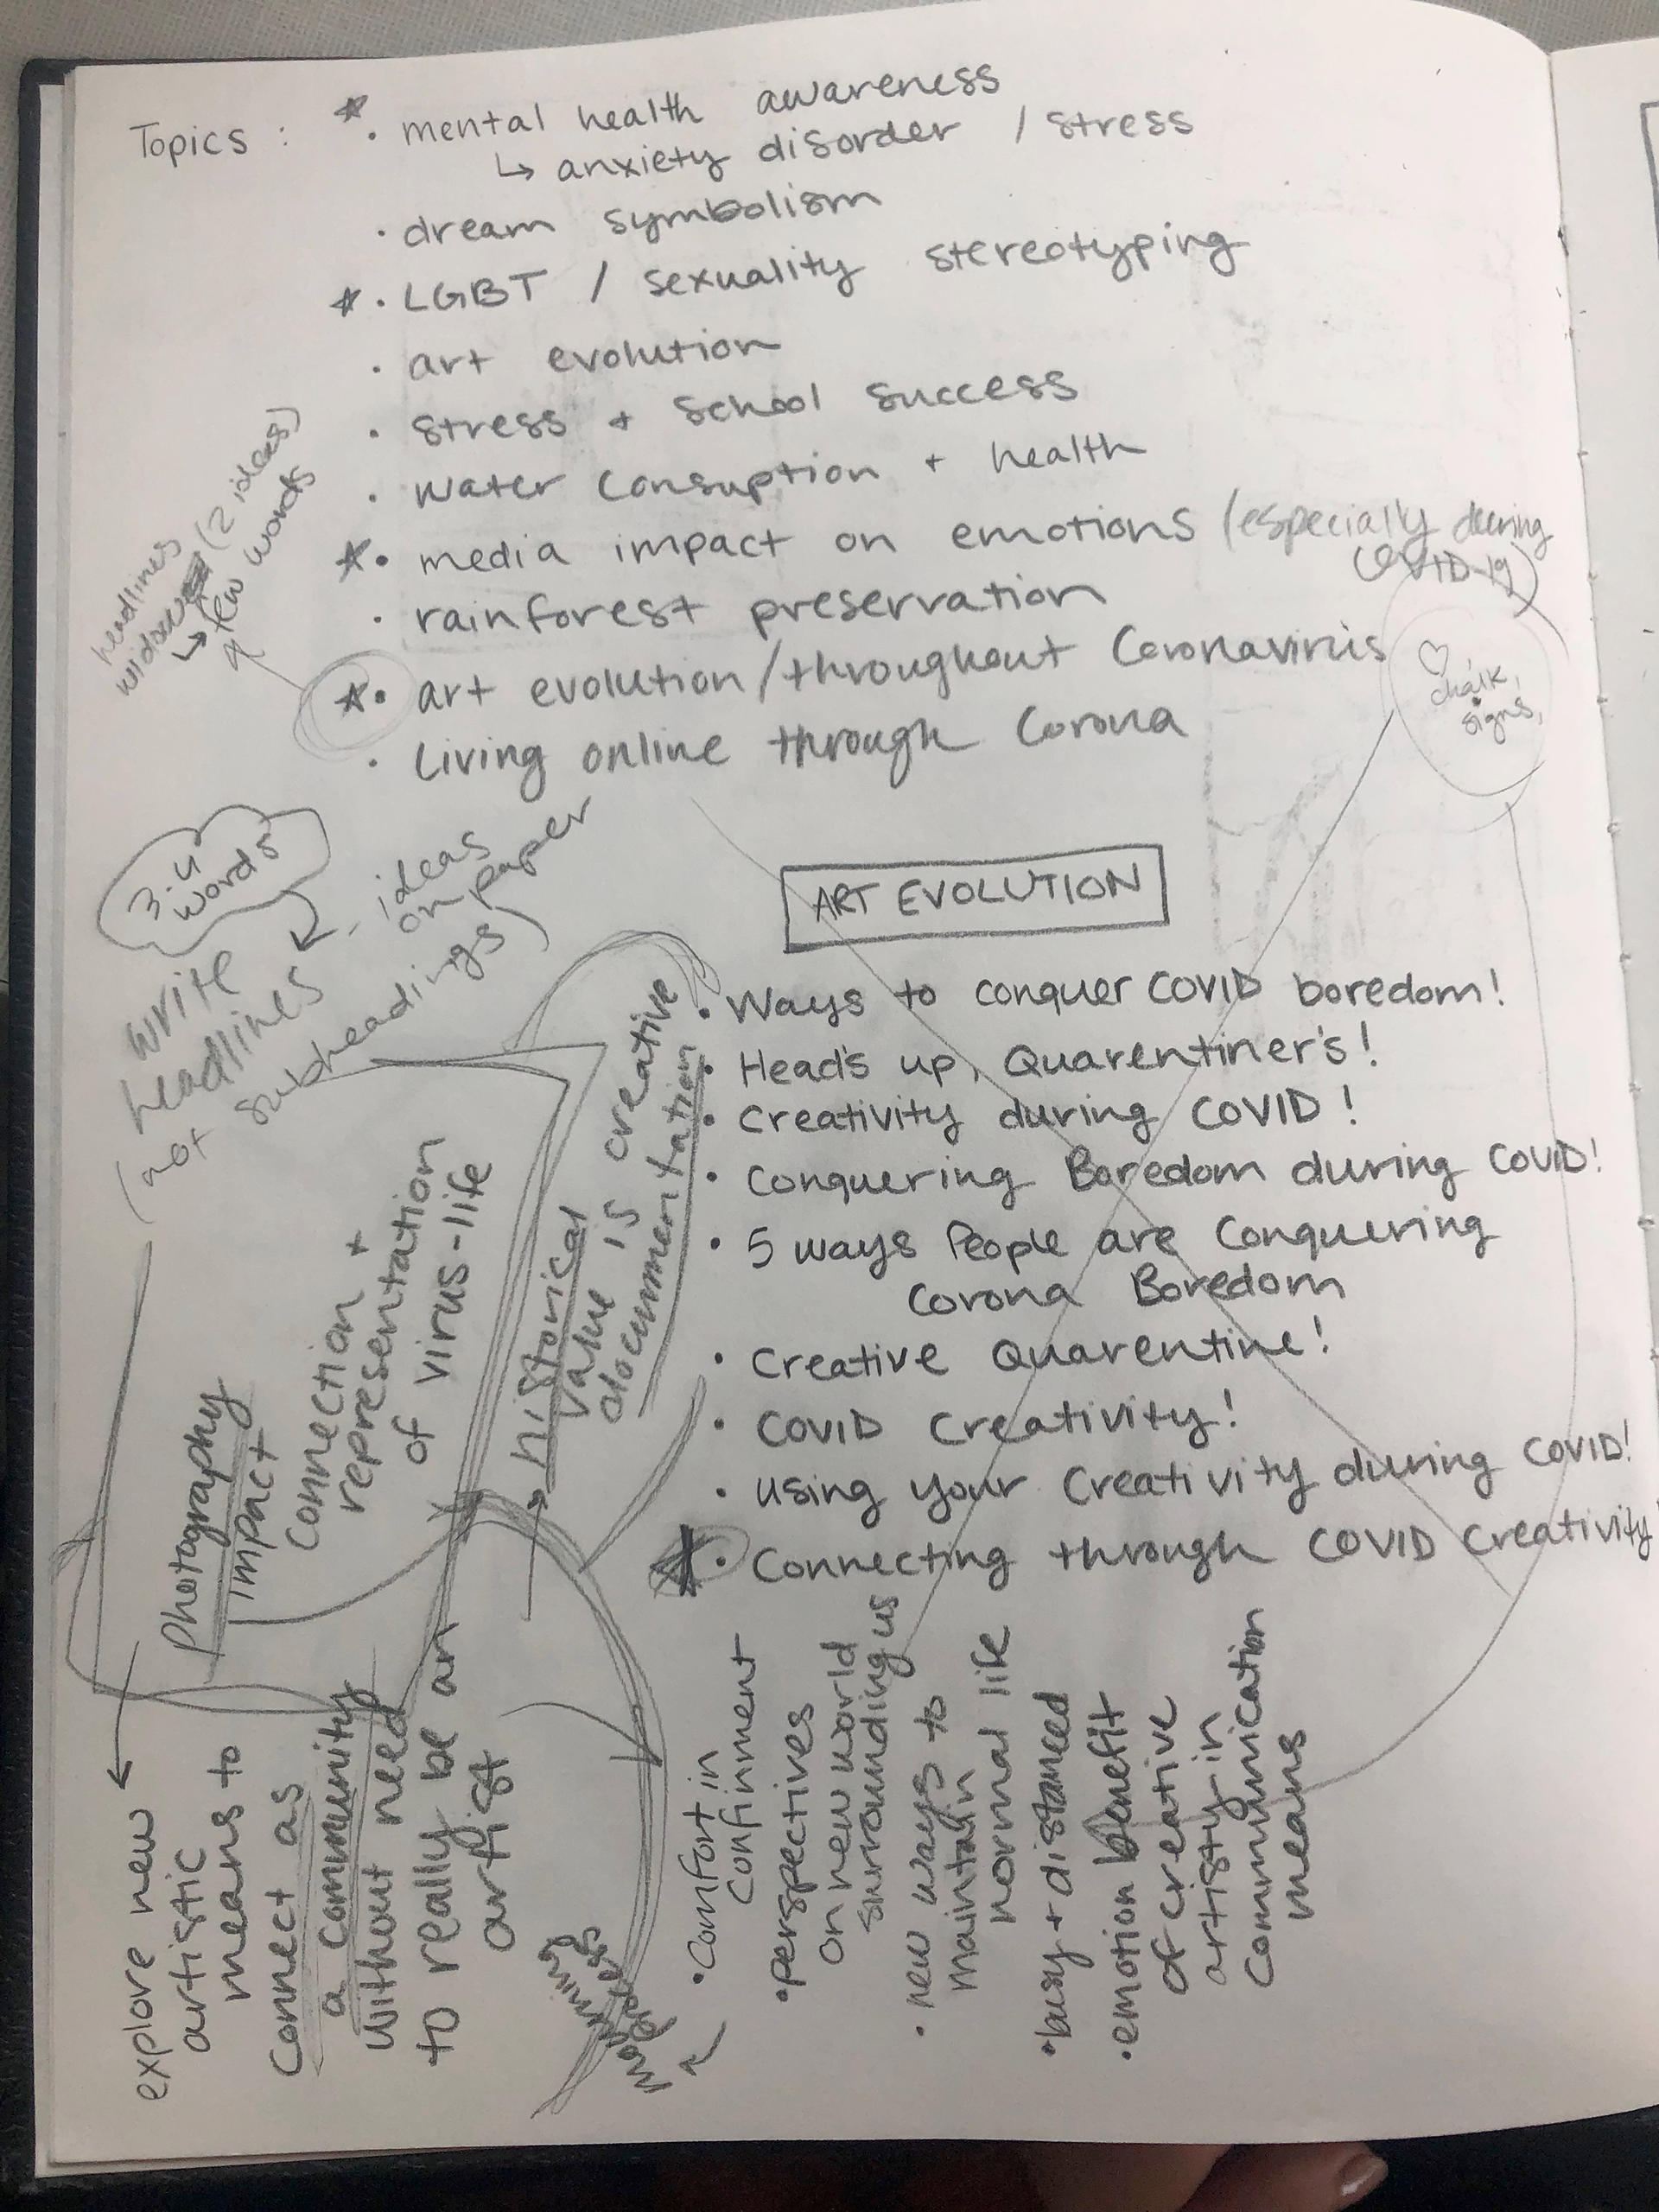 Topics :
• mental health awareness
↳ anxiety disorder / stress
• dream symbolism
• LGBT / sexuality stereotyping
• art evolution
• stress + school success
• water consuption + health
• media impact on emotions (especially during
COVID-19)
• rainforest preservation
• art evolution/throughout Coronavirus
• Living online through Corona
headlines
(2 ideas)
↳ few words
♡
chalk,
signs,
3-4
words
write
headlines
- ideas
on paper
(not subheadings)
ART EVOLUTION
• Ways to conquer COVID boredom!
• Head's up, Quarentiner's!
• Creativity during COVID!
• Conquering Boredom during COVID!
• 5 ways People are Conquering
Corona Boredom
• Creative Quarentine!
• COVID Creativity!
• using your Creativity during COVID!
• Connecting through COVID Creativity
historical
value is creative
documentation
Photography
impact
Connection +
representation
of virus-life
explore new
artistic
means to
connect as
a community
without need
to really be an
artist
• comfort in
confinment
• perspectives
on new world
surrounding us
• new ways to
maintain
normal life
• busy + distanced
• emotion benefit
of creative
artistry in
communication
means